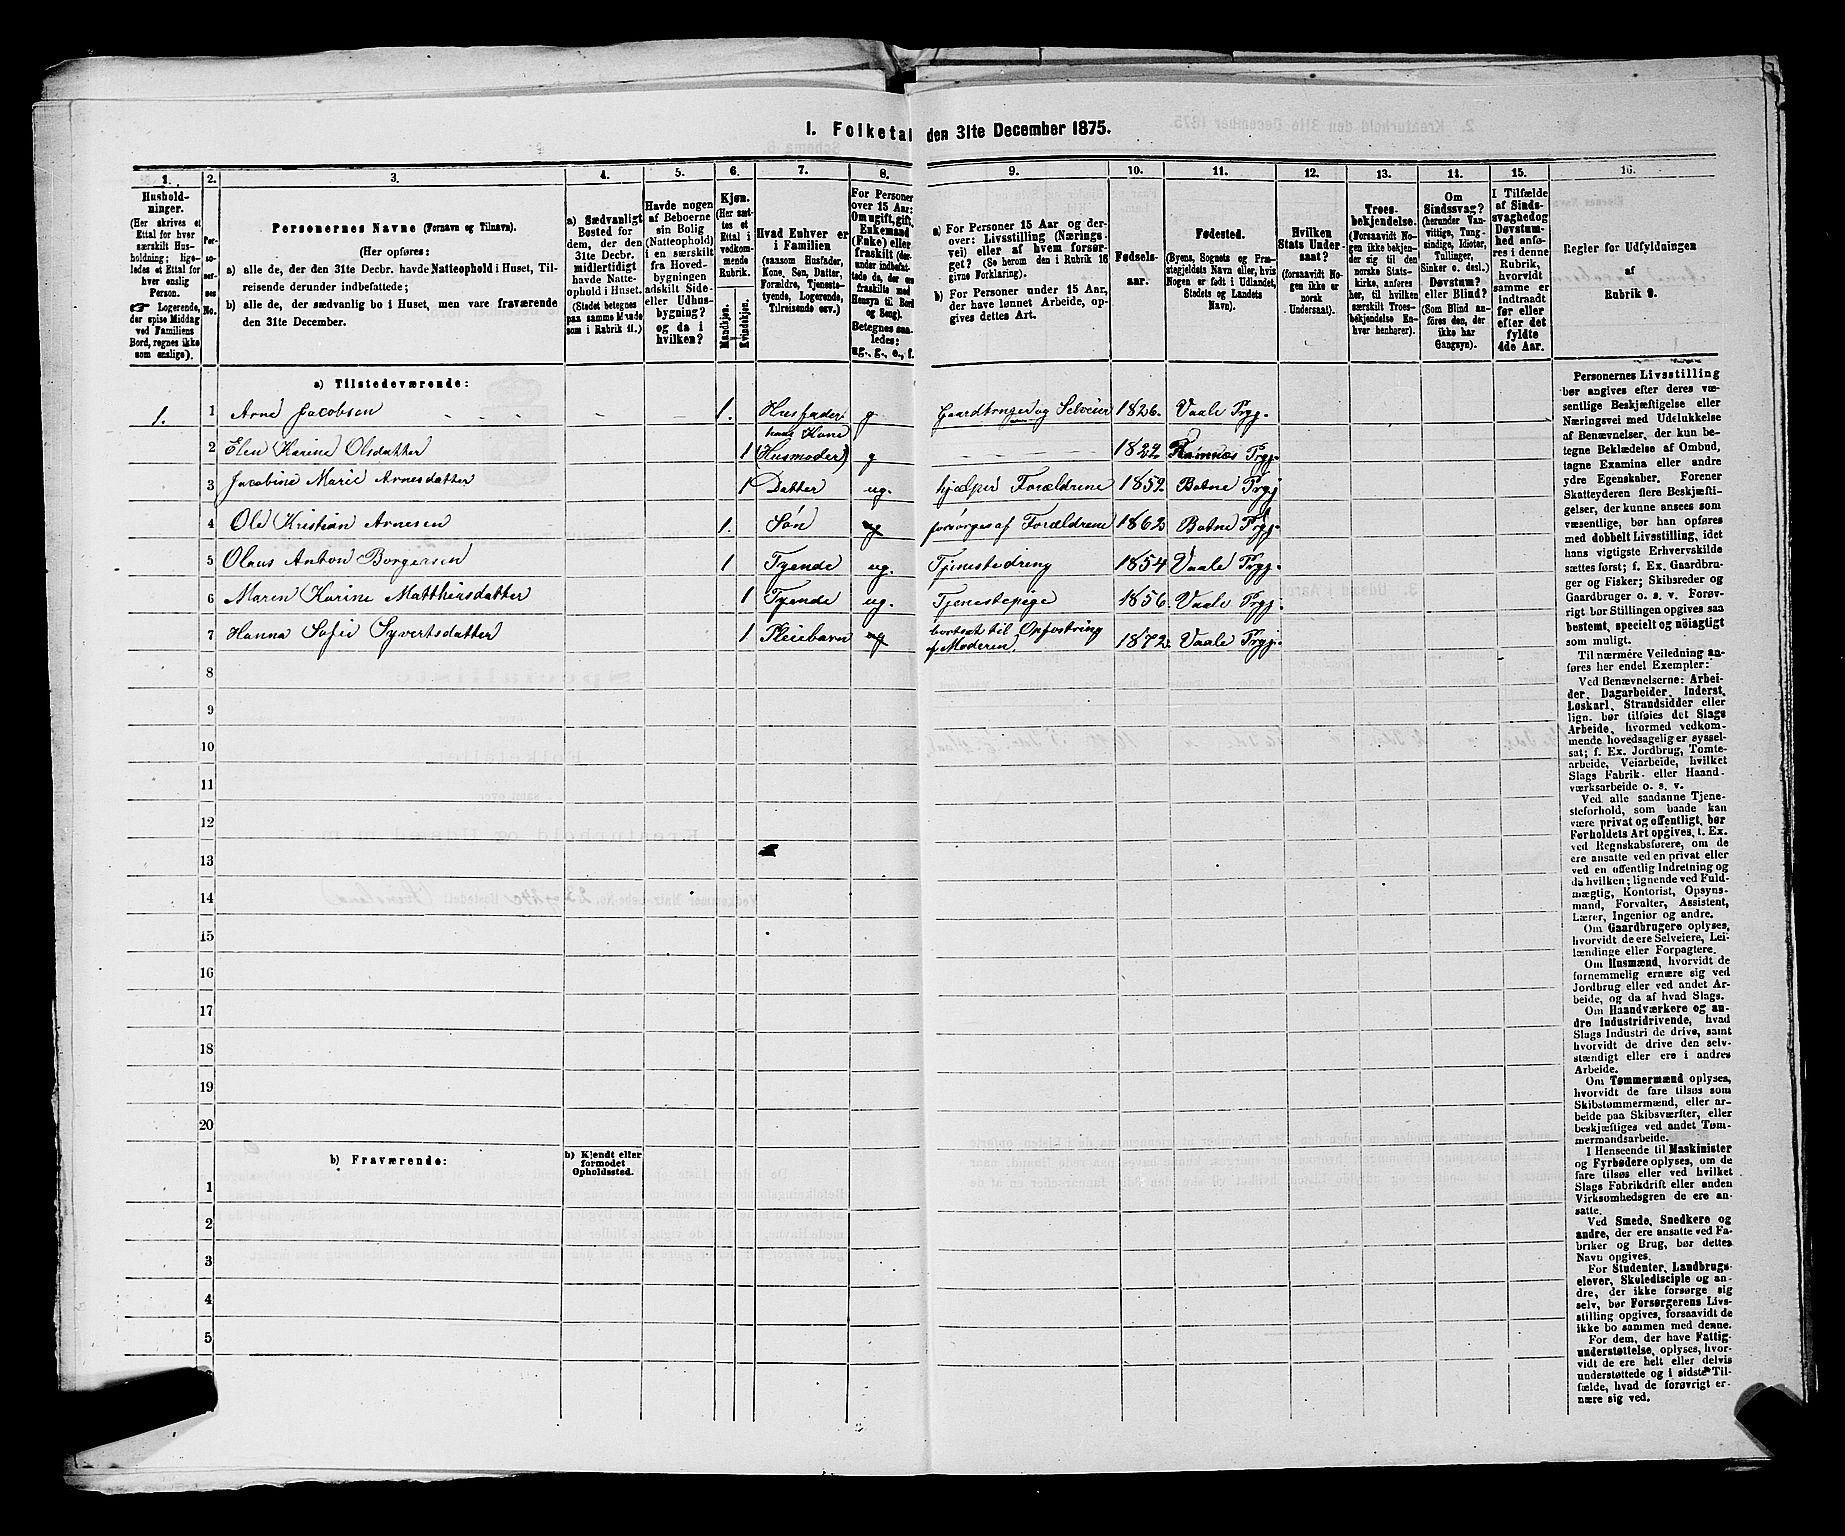 I. Folketal den 31te December 1875.
1. 2. 3. 4. 5. 6. 7. 8. 9. 10. 11. 12. 13. 14. 15. 16.
Hushold-
ninger.
(Her skrives et
Ettal for hver
særskilt Hus-
holdning; lige-
ledes et Ettal for
hver enslig
Person.
☞ Logerende,
der spise Middag
ved Familiens
Bord, regnes ikke
som enslige).
Per-
so-
ner-
nes
No.
Personernes Navne (Fornavn og Tilnavn).
(Her opføres:
a) alle de, der den 31te Decbr. havde Natteophold i Huset, Til-
reisende derunder indbefattede;
b) alle de, der sædvanlig bo i Huset, men vare fraværende
den 31te December.
a) Sædvanligt
Bosted for
dem, der den
31te Decbr.
midlertidigt
havde Natte-
ophold i Huset.
(Stedet betegnes
paa samme Maade
som i Rubrik 11.)
Havde nogen
af Beboerne
sin Bolig
(Natteophold)
i en særskilt
fra Hoved-
bygningen
adskilt Side-
eller Udhus-
bygning?
og da i
hvilken?
Kjøn.
(Her sæt-
tes et
Ettal i
vedkom-
mende
Rubrik.
Mandkjøn.
Kvindekjøn.
Hvad Enhver er
i Familien
(saasom Husfader,
Kone, Søn, Datter,
Forældre, Tjeneste-
tyende, Logerende,
Tilreisende osv.)
For Personer
over 15 Aar:
Om ugift, gift,
Enkemand
(Enke) eller
fraskilt (der-
under indbefat-
tede de, der ere
fraskilte med
Hensyn til Bord
og Seng).
Betegnes saa-
ledes:
ug., g., e., f.
a) For Personer 15 Aar og der-
over: Livsstilling (Nærings-
vei) eller af hvem forsør-
get? (Se herom den i Rubrik 16
givne Forklaring).
b) For Personer under 15 Aar,
der have lønnet Arbeide, op-
gives dettes Art.
Fødsels-
aar.
Fødested.
(Byens, Sognets og Præ-
stegjeldets Navn eller, hvis
Nogen er født i Udlandet,
Stedets og Landets
Navn).
Hvilken
Stats Under-
saat?
(forsaavidt No-
gen ikke er
norsk
Undersaat).
Troes-
bekjendelse.
(Forsaavidt No-
gen ikke bekjen-
der sig til den
norske Stats-
kirke, anføres
her, til hvilken
særskilt Troes-
bekjendelse En-
hver henhører).
Om
Sindssvag?
(herunder Van-
vittige, Tung-
sindige, Idioter,
Tullinger,
Sinker o. desl.)
Døvstum?
eller Blind?
(Som Blind an-
føres den, der
ikke har
Gangsyn).
I Tilfælde
af Sinds-
svaghed og
Døvstum-
hed anfø-
res i denne
Rubrik,
hvorvidt
samme er
indtraadt
før eller
efter det
fyldte
4de Aar.
Regler for Udfyldningen
af
Rubrik 9.
a) Tilstedeværende:
1. 1 Arne Jacobsen 1. Husfader g Gaardbruger og Selveier 1826. Vaale Prgj.
2 Elen Karine Olsdatter 1 hans Kone (Husmoder) g 1822 Ramnæs Prgj.
3 Jacobine Marie Arnesdatter 1 Datter ug. hjælper Forældrene 1852 Botne Prgj
4 Ole Kristian Arnesen 1. Søn ug forsörges af Forældrene 1862 Botne Prgj.
5 Olaus Anton Borgersen 1 Tyende ug. Tjenestedreng 1854 Vaale Prgj.
6 Maren Karine Matthiisdatter 1 Tyende ug. Tjenestepige 1856. Vaale Prgj.
7 Hanna Sofie Syvertsdatter 1 Pleiebarn ug bortsat til Opfostring af Moderen 1872. Vaale Prgj.
8
9
10
11
12
13
14
15
16
17
18
19
20
b) Fraværende:
b) Kjendt eller
formodet
Opholdssted.
1
2
3
4
5
Personernes Livsstilling
bør angives efter deres væ-
sentlige Beskjæftigelse eller
Næringsvei med Udelukkelse
af Benævnelser, der kun be-
tegne Beklædelse af Ombud,
tagne Examina eller andre
ydre Egenskaber. Forener
Skatteyderen flere Beskjæfti-
gelser, der kunne ansees som
væsentlige, bør han opføres
med dobbelt Livsstilling, idet
hans vigtigste Erhvervskilde
sættes først; f. Ex. Gaardbru-
ger og Fisker; Skibsreder og
Gaardbruger o. s. v. Forøv-
rigt bør Stillingen opgives saa
bestemt, specielt og nøiagtigt
som muligt.
Til nærmere Veiledning an-
føres her endel Exempler:
Ved Benævnelserne: Arbei-
der, Dagarbeider, Inderst,
Løskarl, Strandsidder eller
lign. bør tilføies det Slags
Arbeide, hvormed vedkom-
mende hovedsagelig er syssel-
sat; f. Ex. Jordbrug, Tomte-
arbeide, Veiarbeide, hvilket
Slags Fabrik- eller Haand-
værksarbeide o. s. v.
Ved alle saadanne Tjene-
steforhold, som baade kan
være privat og offentligt, bør
Forholdets Art opgives, t. Ex.
ved Regnskabsførere, om de
ere ansatte ved en privat eller
ved en offentlig Indretning og
da hvilken; lignende ved Fuld-
mægtig, Kontorist, Opsyns-
mand, Forvalter, Assistent,
Lærer, Ingeniør og andre.
Om Gaardbrugere oplyses,
hvorvidt de ere Selveiere, Lei-
lændinge eller Forpagtere.
Om Husmænd, hvorvidt de
fornemmelig ernære sig ved
Jordbrug eller ved andet Ar-
beide, og da af hvad Slags.
Om Haandværkere og an-
dre Industridrivende, hvad
Slags Industri de drive, samt
hvorvidt de drive den selv-
stændigt eller ere i andres
Arbeide.
Om Tømmermænd oplyses,
hvorvidt de fare tilsøs som
Skibstømmermænd, eller ar-
beide paa Skibsværfter, eller
beskjæftiges ved andet Tøm-
mermandsarbeide.
I Henseende til Maskinister
og Fyrbødere oplyses, om de
fare tilsøs eller ved hvilket
Slags Fabrikdrift eller anden
Virksomhedsgren de ere an-
satte.
Ved Smede, Snedkere og
andre, der ere ansatte ved Fa-
briker og Brug, bør dettes
Navn opgives.
For Studenter, Landbrugs-
elever, Skoledisciple og an-
dre, der ikke forsørge sig
selv, bør Forsørgerens Livs-
stilling opgives, forsaavidt de
ikke bo sammen med denne.
For dem, der have Fattig-
understøttelse, oplyses, hvor-
vidt de ere helt eller delvis
understøttede og i sidste Til-
fælde, hvad de forøvrigt er-
nære sig ved.